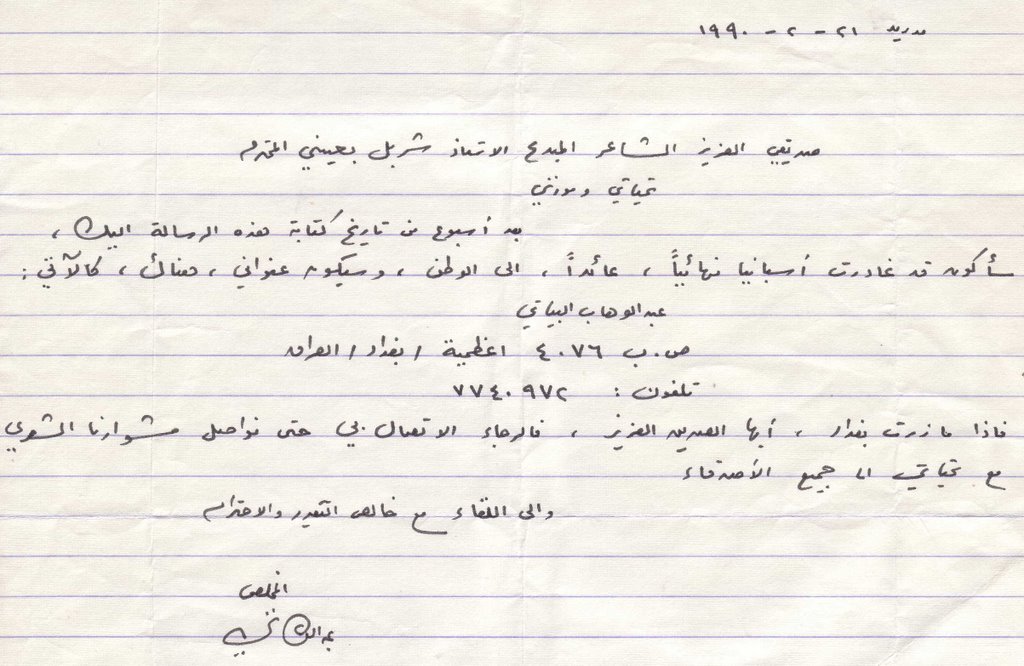 مدريد ٢١ - ٢ - ١٩٩٠
صديقي العزيز الشاعر المبدع الاستاذ شربل بعيني المحترم
تحياتي ومودتي
بعد أسبوع من تاريخ كتابة هذه الرسالة اليك ،
سأكون قد غادرت أسبانيا نهائياً ، عائداً ، الى الوطن ، وسيكون عنواني ، هناك ، كالآتي :
عبد الوهاب البياتي
ص . ب ٤٠٧٦ اعظمية / بغداد / العراق
تلفون : ٧٧٤٠٩٧٢
فاذا ما زرت بغداد ، أيها الصديق العزيز ، فالرجاء الاتصال بي حتى نواصل مشوارنا الشعري
مع تحياتي الى جميع الأصدقاء
والى اللقاء مع خالص التقدير والاحترام
المخلص